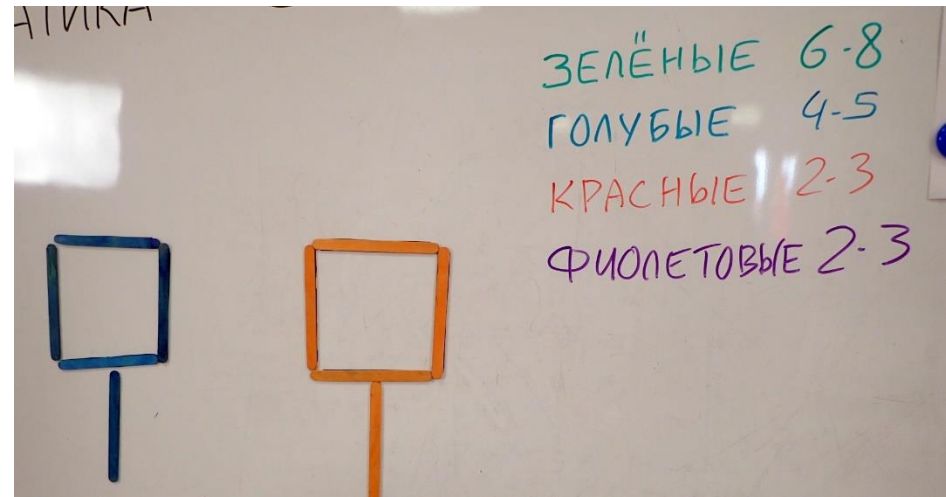 АТИКА
ЗЕЛЁНЫЕ 6-8
ГОЛУБЫЕ 4-5
КРАСНЫЕ 2-3
ФИОЛЕТОВЫЕ 2-3